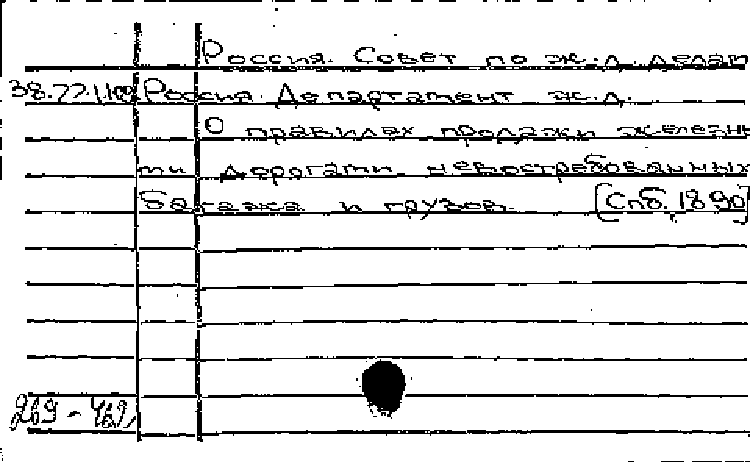 Россия. Совет по ж.-д. делам
38.22.1.109 Россия. Департамент ж.д.
О правилах продажи железны
ми дорогами невостребованных
багажа и грузов. [Спб, 1890]
269-469